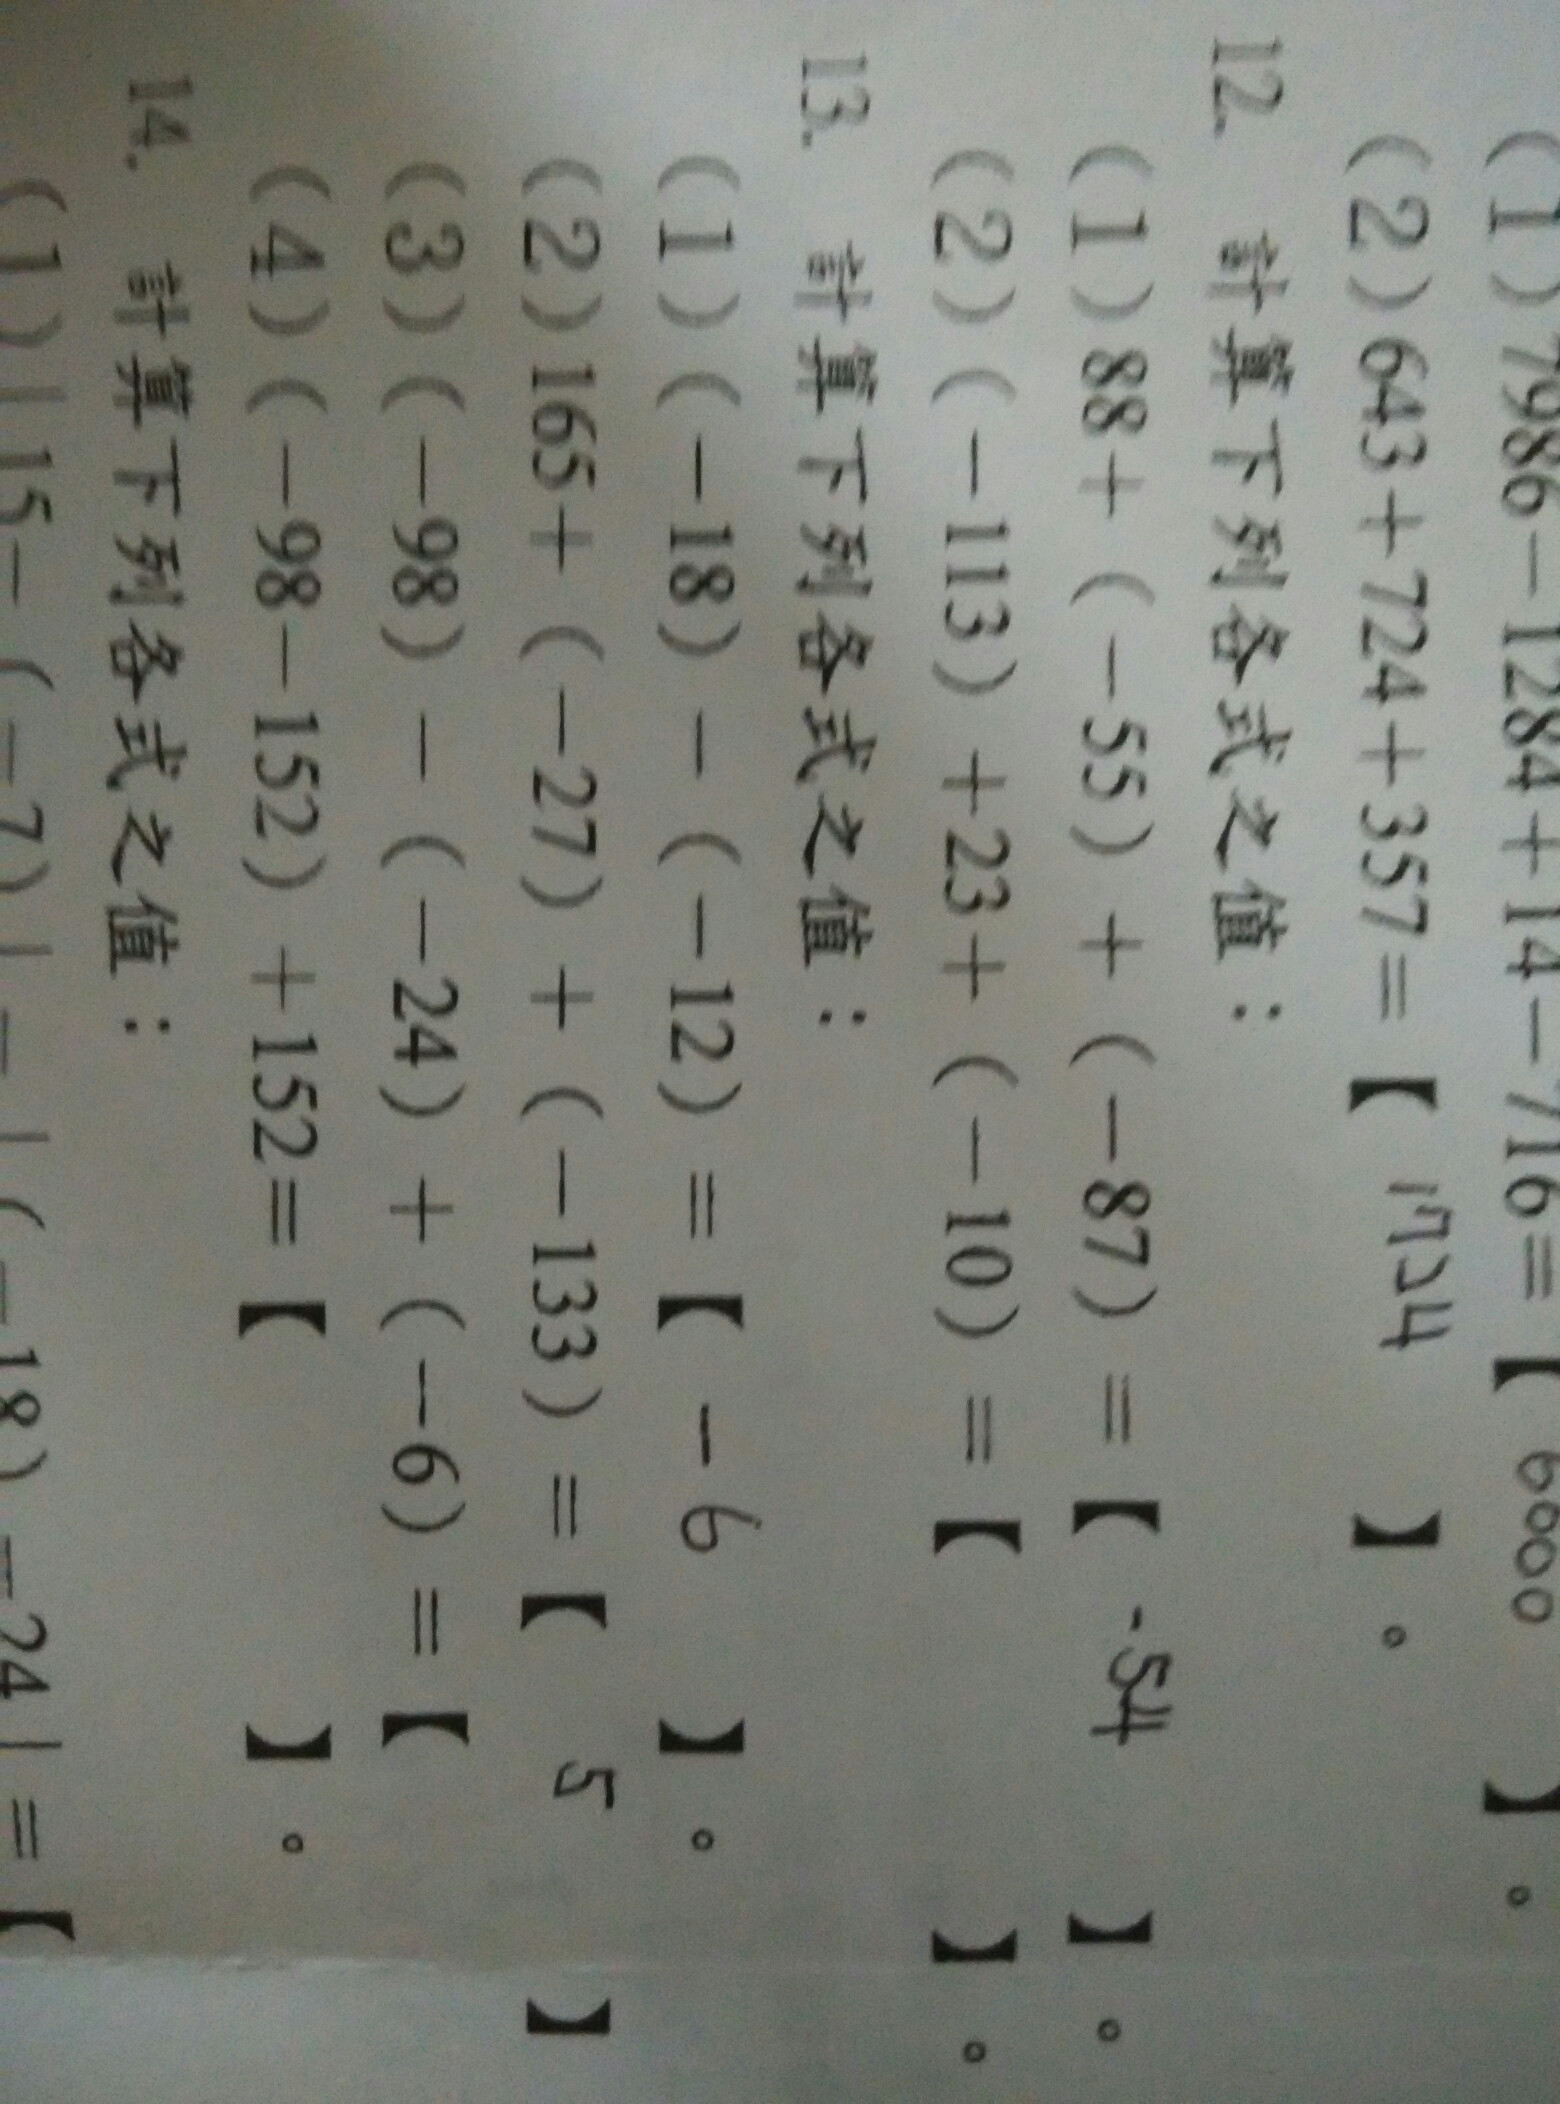 (1) 7986－1284＋14－716＝【 6000 】。
(2) 643＋724＋357＝【 1724 】。
12. 計算下列各式之值：
(1) 88＋(－55)＋(－87)＝【 -54 】。
(2) (－113)＋23＋(－10)＝【 】。
13. 計算下列各式之值：
(1) (－18)－(－12)＝【 -6 】。
(2) 165＋(－27)＋(－133)＝【 5 】
(3) (－98)－(－24)＋(－6)＝【
(4) (－98－152)＋152＝【 】。
14. 計算下列各式之值：
(1) |15－(－7)|－|(－18)－24|＝【